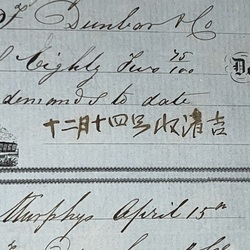 Dunbar & Co
Eighty Two 75/100
demands to date
十二月十四号收清吉
Murphys April 15th